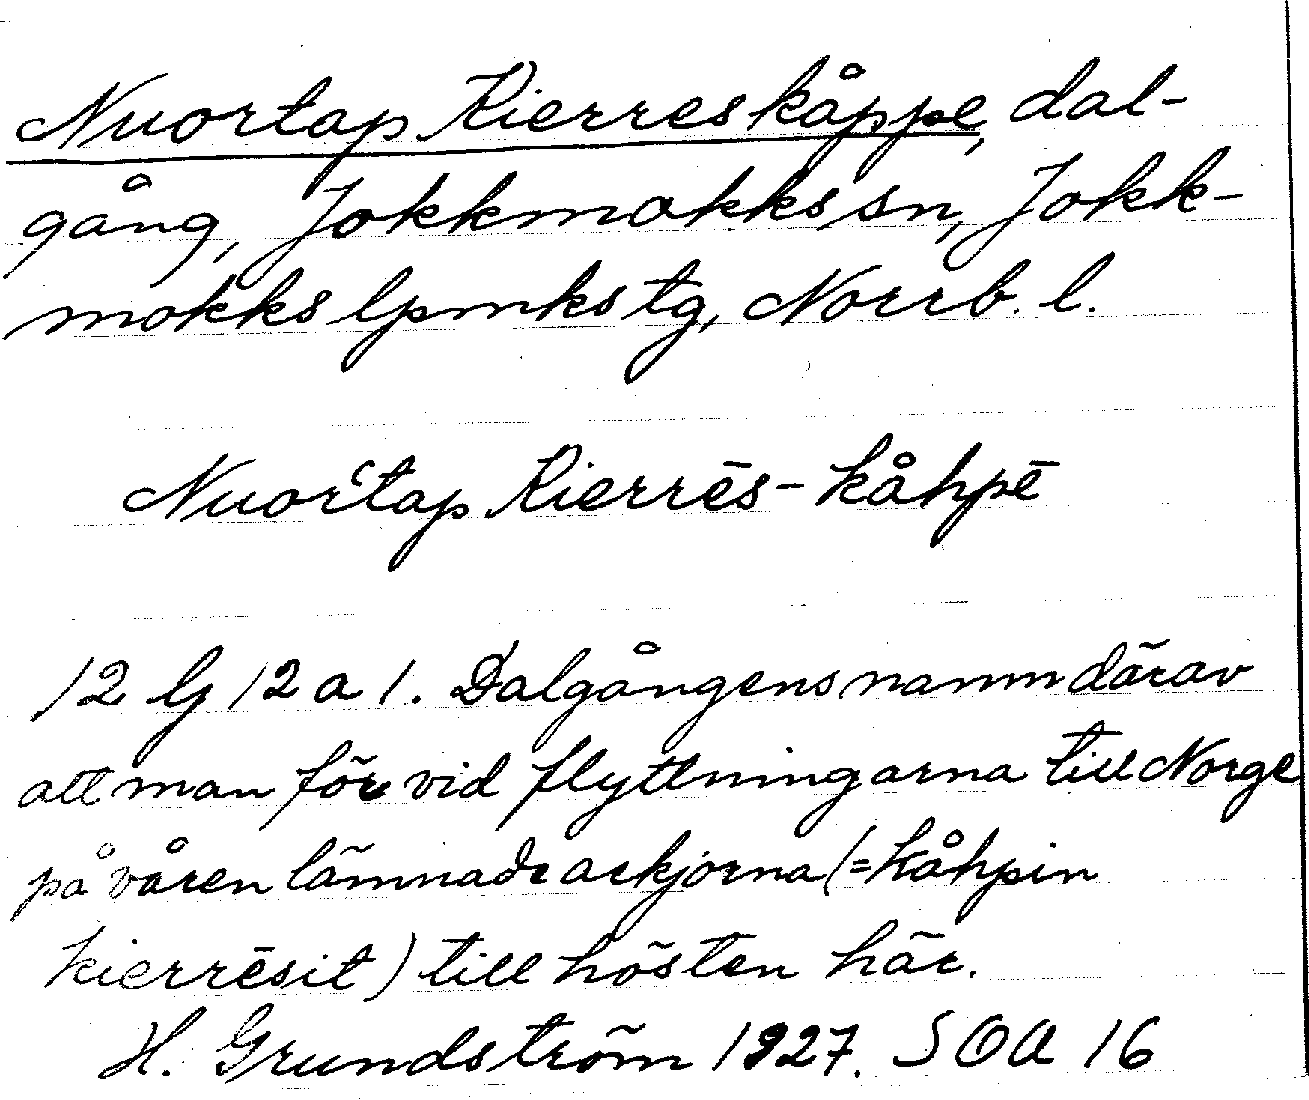 Nuortap Kierreskåppe, dal-
gång, Jokkmokks sn, Jokk-
mokks lpmks tg, Norrb. l.
Nuorʻtap Kierrēs-kåhpē
12 G 12 a 1. Dalgångens namn därav
att man förr vid flyttningarna till Norge
på våren lämnade ackjorna (= kåhpin
kierrēsit) till hösten här.
H. Grundström 1927. SOA 16